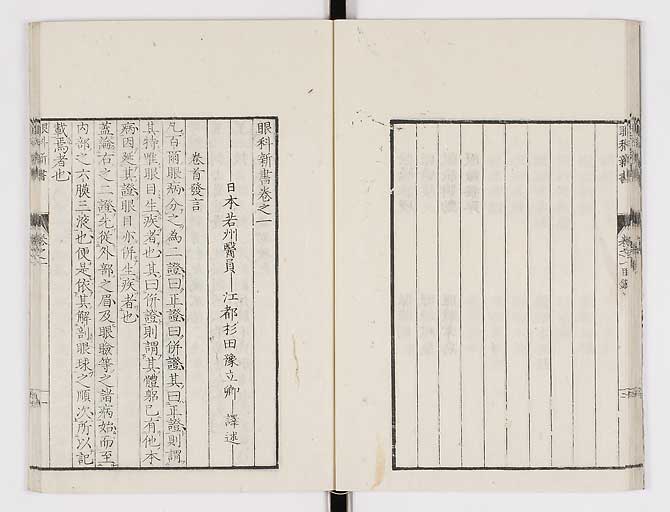 眼科新書
卷之一目錄
眼科新書卷之一
日本若州醫員 江都杉田豫立卿 譯述
卷首發言
凡百爾眼病分之為二證曰正證曰併證其曰正證則謂
其特眼目生疾者也其曰併證則謂其體軀已有他本
病因延其證眼目亦併生疾者也
蓋論右之二證先從外部之眉及眼瞼等之諸病始而至
內部之六膜三液也便是依其解剖眼球之順次所以記
載焉者也
眼科新書
卷之一